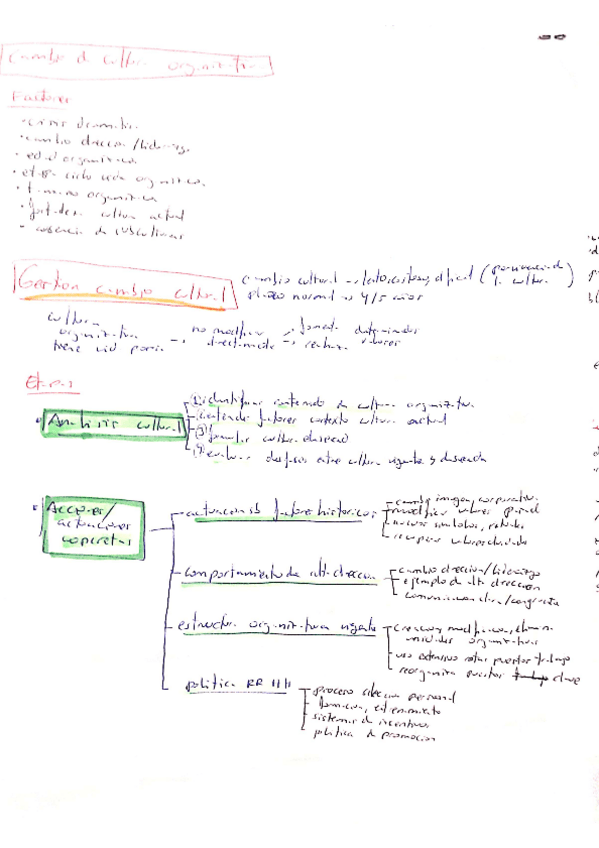 Cambio d cultura organizativa
Factores
• crisis dramática
• cambio dirección/liderazgo
• edad organización
• etapa ciclo vida organización
• tamaño organización
• fortaleza cultura actual
• ausencia de subculturas
Gestión cambio cultural
cambio cultural → costoso, difícil (
plazo normal → 4/5 años
cultura organizativa tiene vida propia → no modificar directamente → fomentar determinados
valores
Etapas
• Análisis cultural
① identificar contenido de cultura organizativa
② entender factores contexto cultura actual
③ formular cultura deseada
④ evaluar desfases entre cultura vigente y deseada
• Acciones/
actuaciones
concretas
actuación sb factores históricos
cambiar imagen corporativa
modificar valores
nuevos símbolos, rituales
recuperar
comportamiento de alta dirección
cambio dirección/liderazgo
ejemplo de alta dirección
comunicación clara/congruente
estructura organizativa vigente
creación, modificación,
unidades organizativas
uso extensivo rotar puestos trabajo
reorganizar puestos clave
política RRHH
proceso selección personal
formación, entrenamiento
sistemas d incentivos
política d promoción